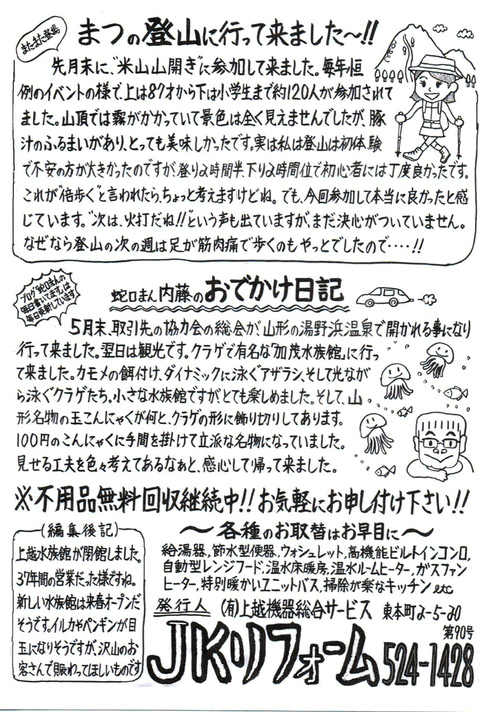 またまた登場
まつの登山に行って来ました〜!!
先月末に、"米山山開き"に参加して来ました。毎年恒
例のイベントの様で上は87才から下は小学生まで約120人が参加されて
ました。山頂では霧がかかっていて景色は全く見えませんでしたが、豚
汁のふるまいがあり、とっても美味しかったです。実は私は登山は初体験
で不安の方が大きかったのですが、登り2時間半、下り2時間位で初心者には丁度良かったです。
これが"倍歩ぐ"と言われたら、ちょっと考えますけどね。でも、今回参加して本当に良かったと感
じています。"次は、火打だね!!"という声も出ていますが、まだ決心がついていません。
なぜなら登山の次の週は足が筋肉痛で歩くのもやっとでしたので‥‥!!
ブログ"蛇口まんの
毎日書いてます"は
毎日更新しています
蛇口まん内藤のおでかけ日記
5月末、取引先の協力会の総会が、山形の湯野浜温泉で開かれる事になり
行って来ました。翌日は観光です。クラゲで有名な「加茂水族館」に行っ
て来ました。カモメの餌付け、ダイナミックに泳ぐアザラシ、そして光なが
ら泳ぐクラゲたち、小さな水族館ですがとても楽しめました。そして、山
形名物の玉こんにゃくが何と、クラゲの形に飾り切りしてあります。
100円のこんにゃくに手間を掛けて立派な名物になっていました。
見せる工夫を色々考えてあるなぁと、感心して帰って来ました。
※不用品無料回収継続中!!お気軽にお申し付け下さい!!
(編集後記)
上越水族館が閉館しました。
37年間の営業だった様ですね。
新しい水族館は来春オープンだ
そうです。イルカやペンギンが目
玉になりそうですが、沢山のお
客さんで賑わってほしいものです
〜各種のお取替はお早目に〜
給湯器、節水型便器、ウォシュレット、高機能ビルトインコンロ、
自動型レンジフード、温水床暖房、温水ルームヒーター、ガスファン
ヒーター、特別暖かいユニットバス、掃除が楽なキッチン etc
発行人 (有)上越機器総合サービス 東本町2-5-30
第90号
JKリフォーム 524-1428